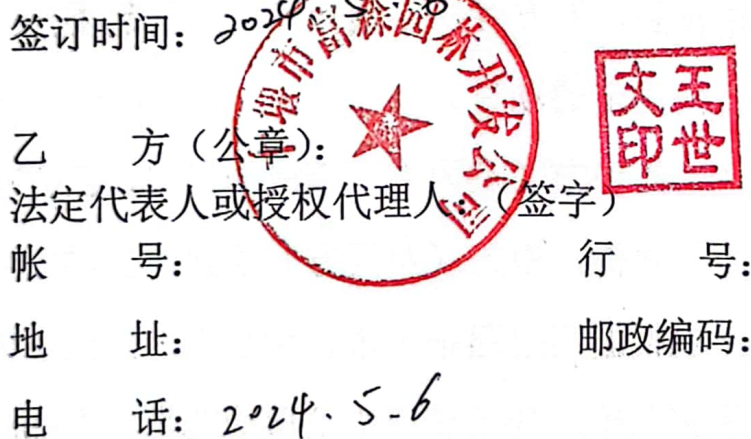 签订时间：2024.5.6
银市富森园林开发公司
王世文印
乙　　方（公章）：
法定代表人或授权代理人：（签字）
帐　　号：　　　　　　　　　　行　　号：
地　　址：　　　　　　　　　　邮政编码：
电　　话：2024.5.6